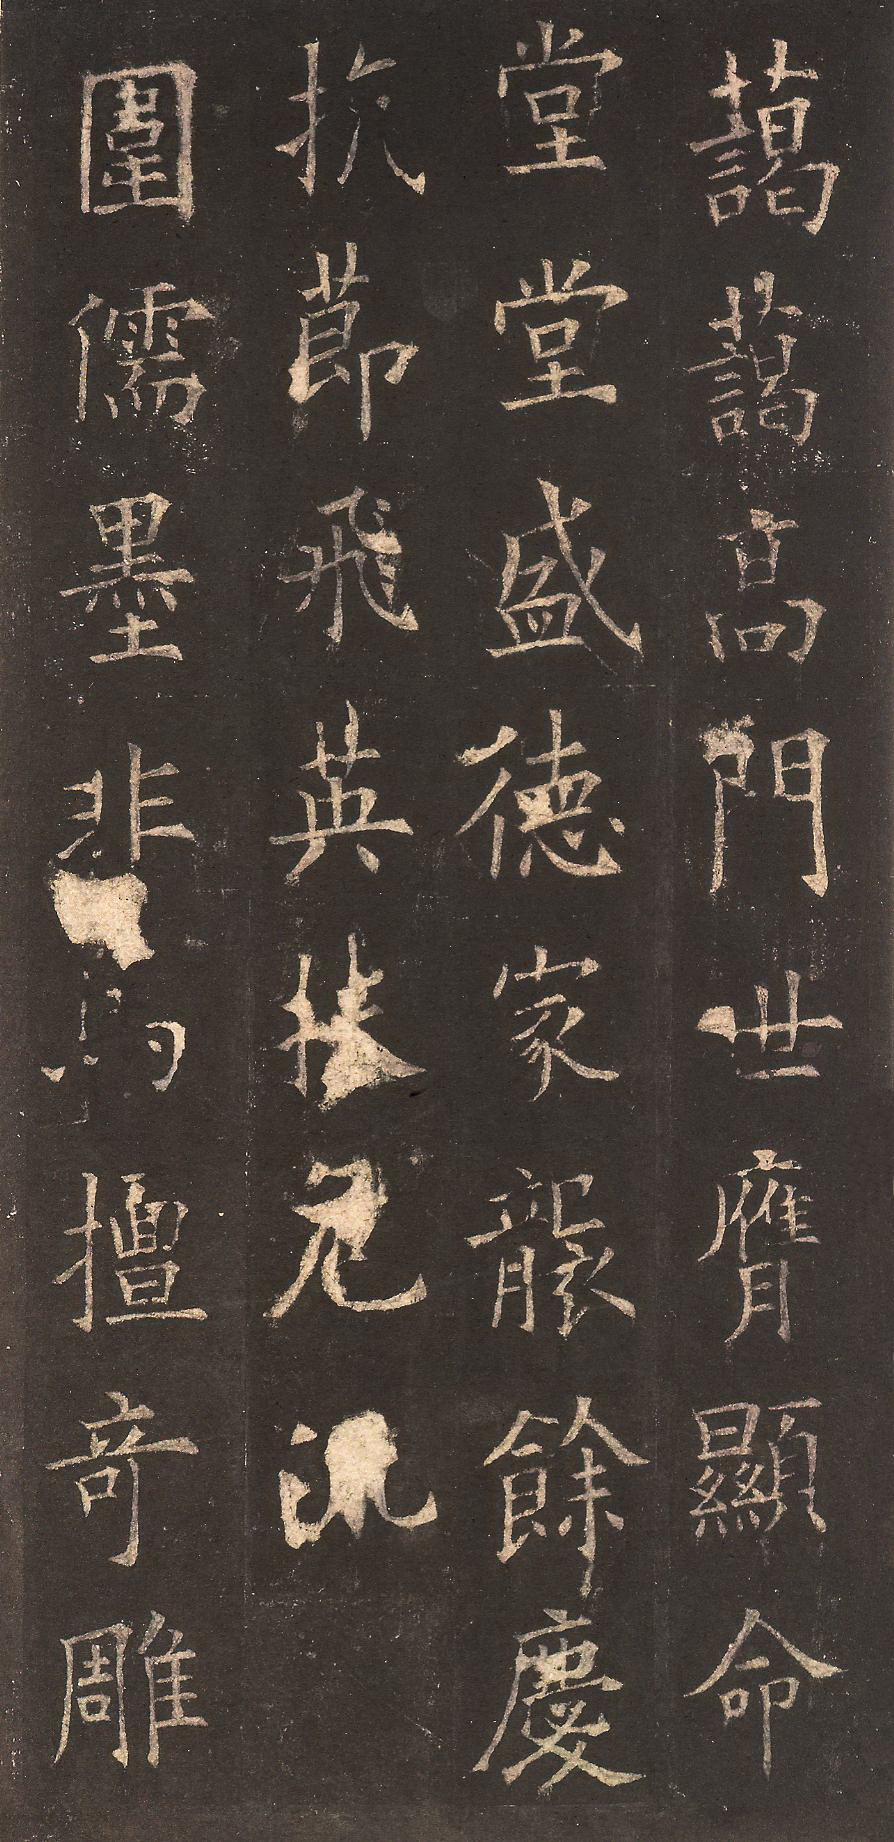 藹藹高門世膺顯命
堂堂盛德家襲餘慶
抗節飛英扶危
圍儒墨擅奇雕